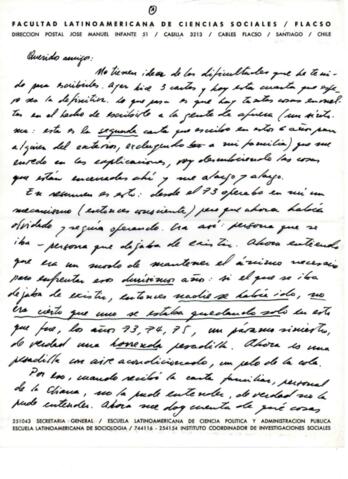 FACULTAD LATINOAMERICANA DE CIENCIAS SOCIALES / FLACSO
DIRECCION POSTAL JOSE MANUEL INFANTE 51 / CASILLA 3213 / CABLES FLACSO / SANTIAGO / CHILE
Querido amigo:
No tienen idea de las dificultades que he teni-
do para escribirles. Ayer hice 3 cartas y hoy esta cuarta que espe-
ro sea la definitiva. Lo que pasa es que hay tantas cosas envuel-
tas en el hecho de escribirle a la gente de afuera (un sínto-
ma: esta es la segunda carta que escribo en estos 6 años para
alguien del exterior, excluyendo a mi familia) que me
enredo en las explicaciones, voy descubriendo las cosas
que están encerradas ahí y me alargo y alargo.
En resumen es esto: desde el 73 operaba en mí un
mecanismo (entonces consciente) pero que ahora había
olvidado y seguía operando. Era así: persona que se
iba - persona que dejaba de existir. Ahora entiendo
que era un modo de mantener el ánimo necesario
para enfrentar esos durísimos años: si el que se iba
dejaba de existir, entonces nadie se había ido, no
era cierto que uno se estaba quedando solo en esto
que fue, los años 73, 74, 75, un páramo siniestro,
de verdad una horrenda pesadilla. Ahora es una
pesadilla con aire acondicionado, un pelo de la cola.
Por eso, cuando recibí la carta familiar, personal
de la Eliana, no la pude entender, de verdad no la
pude entender. Ahora me doy cuenta de qué cosas
251043 SECRETARIA GENERAL / ESCUELA LATINOAMERICANA DE CIENCIA POLITICA Y ADMINISTRACION PUBLICA
ESCUELA LATINOAMERICANA DE SOCIOLOGIA / 744116 - 254154 INSTITUTO COORDINADOR DE INVESTIGACIONES SOCIALES